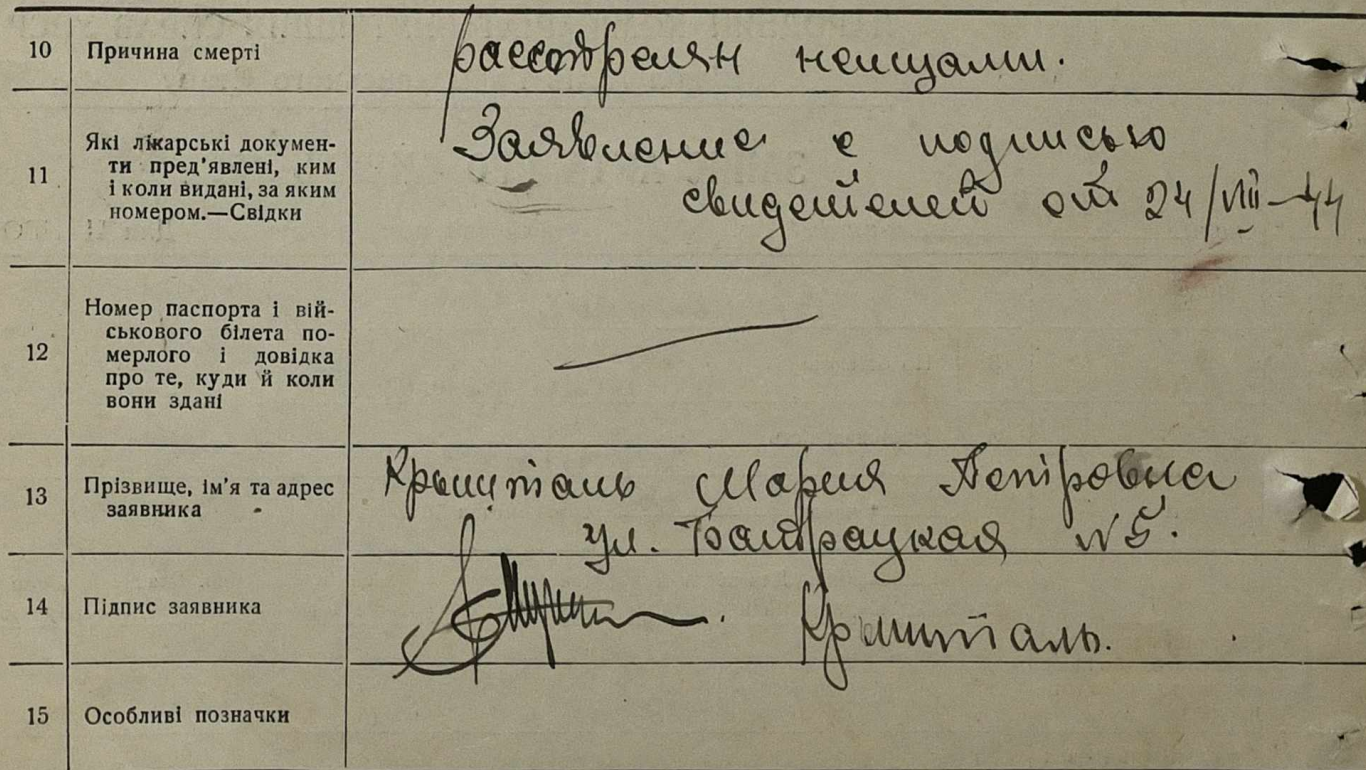 10 Причина смерті расстрелян немцами.
11 Які лікарські докумен-
ти пред'явлені, ким
і коли видані, за яким
номером.—Свідки
Заявление с подписью
свидетелей от 24/VIII–44
12 Номер паспорта і вій-
ськового білета по-
мерлого і довідка
про те, куди й коли
вони здані
13 Прізвище, ім'я та адрес
заявника
Мария Петровна
ул. Батрацкая №5.
14 Підпис заявника
15 Особливі позначки